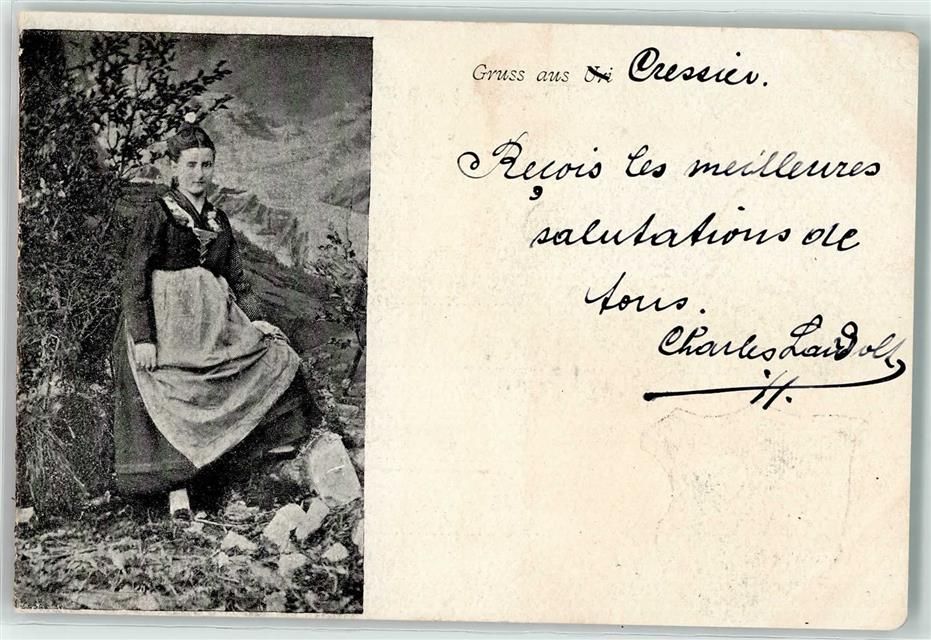 Gruss aus Uri Cressier.
Reçois les meilleures
salutations de
tous.
Charles Landolt